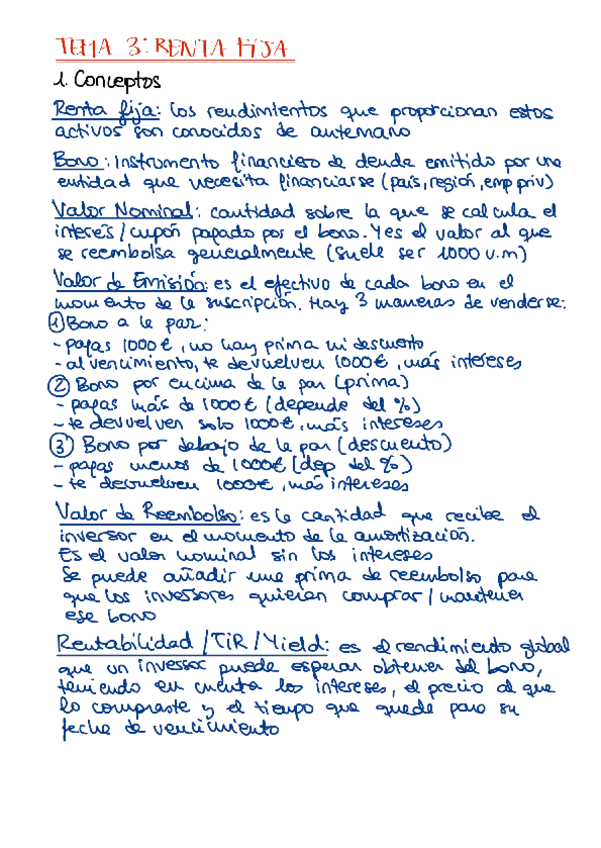 TEMA 3: RENTA FIJA
1. Conceptos
Renta fija: los rendimientos que proporcionan estos
activos son conocidos de antemano
Bono: instrumento financiero de deuda emitido por una
entidad que necesita financiarse (país, región, emp priv)
Valor Nominal: cantidad sobre la que se calcula el
interés/cupón pagado por el bono. Y es el valor al que
se reembolsa generalmente (suele ser 1000 u.m)
Valor de Emisión: es el efectivo de cada bono en el
momento de la suscripción. Hay 3 maneras de venderse:
① Bono a la par:
- pagas 1000€, no hay prima ni descuento
- al vencimiento, te devuelven 1000€, más intereses
② Bono por encima de la par (prima)
- pagas más de 1000€ (depende del %)
- te devuelven solo 1000€, más intereses
③ Bono por debajo de la par (descuento)
- pagas menos de 1000€ (dep del %)
- te devuelven 1000€, más intereses
Valor de Reembolso: es la cantidad que recibe el
inversor en el momento de la amortización.
Es el valor nominal sin los intereses
Se puede añadir una prima de reembolso para
que los inversores quieran comprar/mantener
ese bono
Rentabilidad/TIR/Yield: es el rendimiento global
que un inversor puede esperar obtener del bono,
teniendo en cuenta los intereses, el precio al que
lo compraste y el tiempo que quede para su
fecha de vencimiento